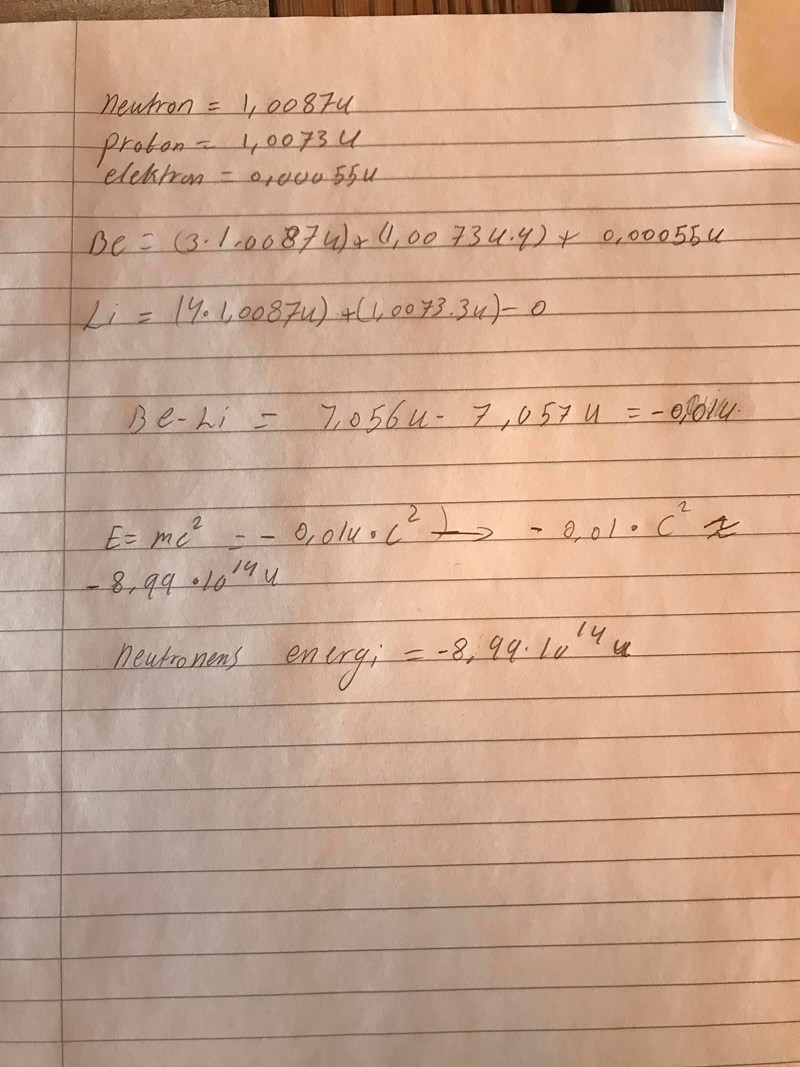 neutron = 1,0087u
proton = 1,0073u
elektron = 0,00055u
Be = (3·1.0087u)+(1,0073u·4)+ 0,00055u
Li = (4·1,0087u)+(1,0073·3u)-0
Be-Li = 7,056u- 7,057u = -0,01u.
E= mc² = - 0,01u·c² → - 0,01·c² ≈
- 8,99·10¹⁴u
neutronens energi = -8,99·10¹⁴u